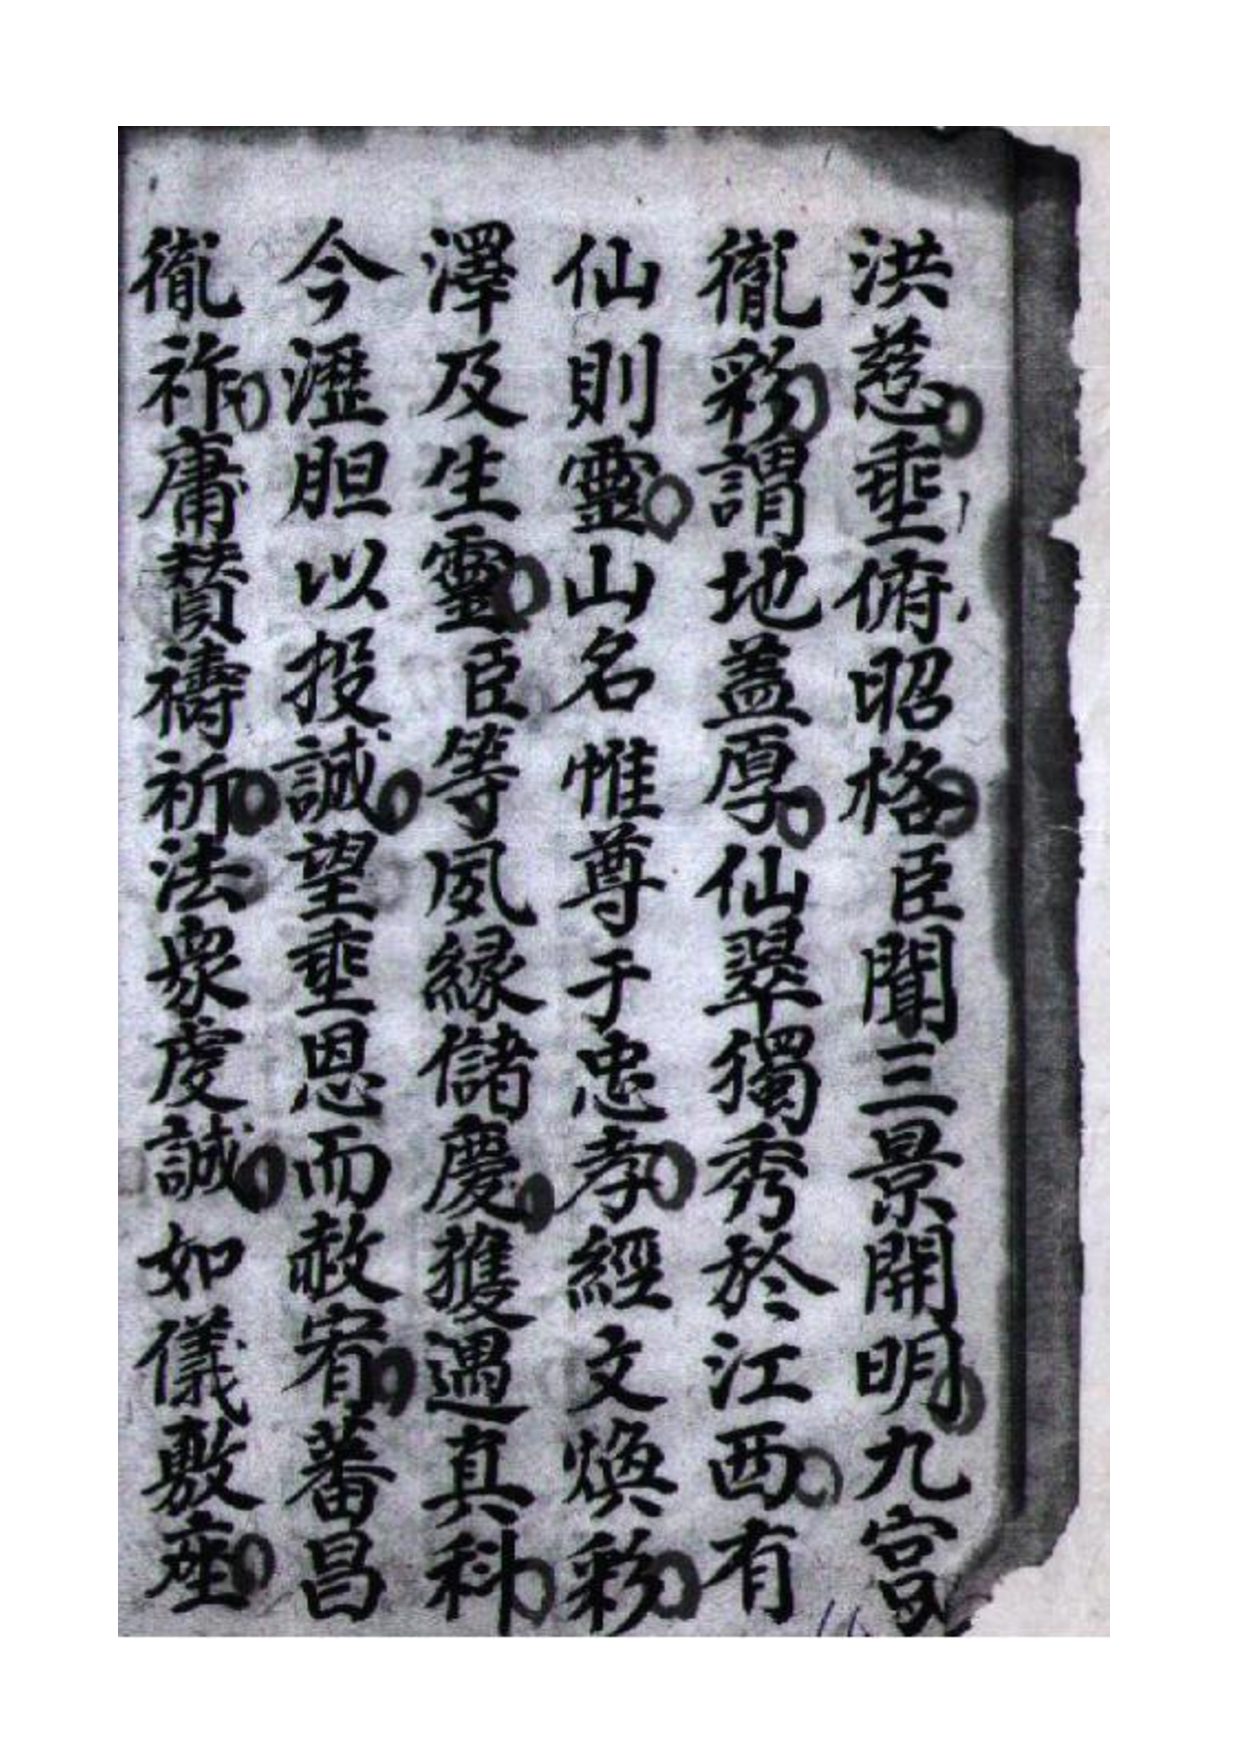 洪慈垂俯昭格臣聞三景開明九宮
胤彩謂地蓋厚仙翠獨秀於江西有
仙則靈山名惟尊于忠孝經文煥彩
澤及生靈臣等夙緣儲慶獲遇真科
今瀝胆以投誠望垂恩而赦宥蕃昌
胤祚庸賛禱祈法衆虔誠如儀敷座